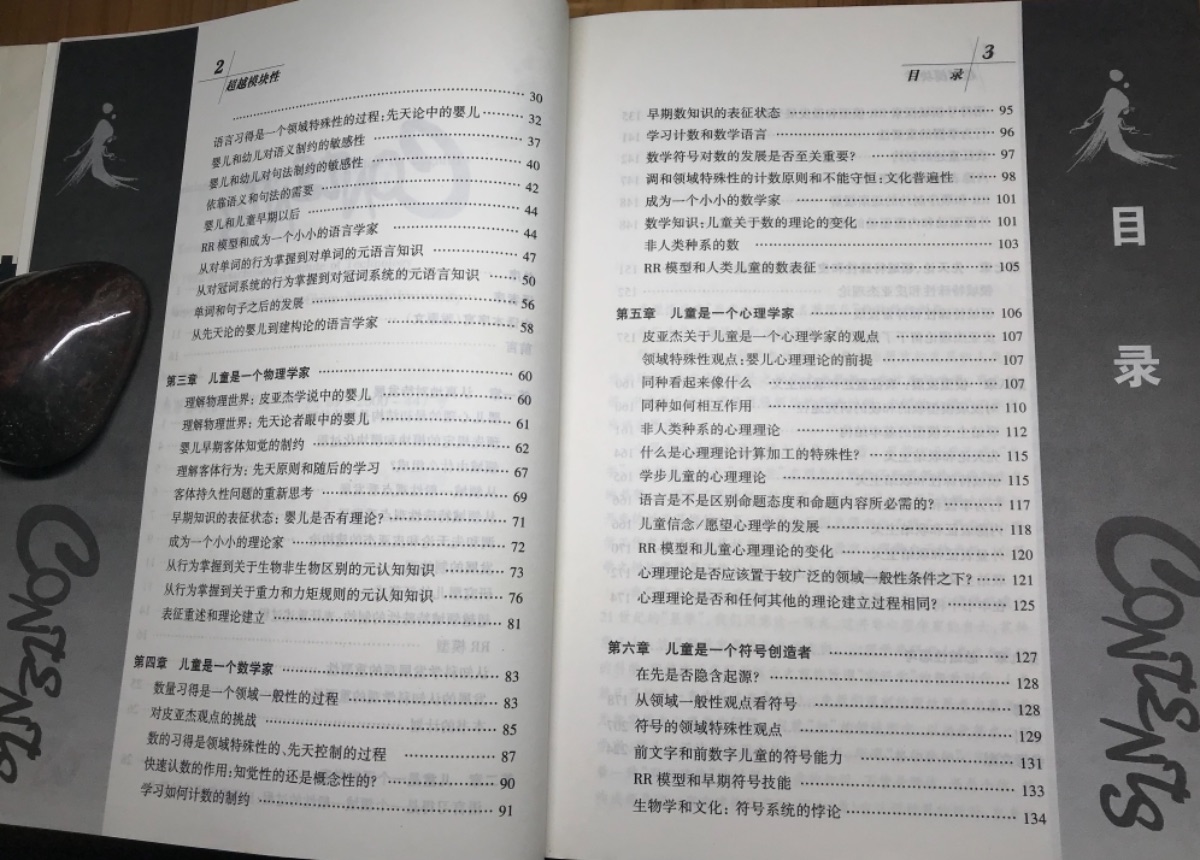 2
超越模块性
…… 30
语言习得是一个领域特殊性的过程:先天论中的婴儿 …… 32
婴儿和幼儿对语义制约的敏感性 …… 37
婴儿和幼儿对句法制约的敏感性 …… 40
依靠语义和句法的需要 …… 42
婴儿和儿童早期以后 …… 44
RR 模型和成为一个小小的语言学家 …… 44
从对单词的行为掌握到对单词的元语言知识 …… 47
从对冠词系统的行为掌握到对冠词系统的元语言知识 …… 50
单词和句子之后的发展 …… 56
从先天论的婴儿到建构论的语言学家 …… 58
第三章 儿童是一个物理学家 …… 60
理解物理世界:皮亚杰学说中的婴儿 …… 60
理解物理世界:先天论者眼中的婴儿 …… 61
婴儿早期客体知觉的制约 …… 62
理解客体行为:先天原则和随后的学习 …… 67
客体持久性问题的重新思考 …… 69
早期知识的表征状态:婴儿是否有理论? …… 71
成为一个小小的理论家 …… 72
从行为掌握到关于生物非生物区别的元认知知识 …… 73
从行为掌握到关于重力和力矩规则的元认知知识 …… 76
表征重述和理论建立 …… 81
第四章 儿童是一个数学家 …… 83
数量习得是一个领域一般性的过程 …… 83
对皮亚杰观点的挑战 …… 85
数的习得是领域特殊性的、先天控制的过程 …… 87
快速认数的作用:知觉性的还是概念性的? …… 90
学习如何计数的制约 …… 91
3
目 录
早期数知识的表征状态 …… 95
学习计数和数学语言 …… 96
数学符号对数的发展是否至关重要? …… 97
调和领域特殊性的计数原则和不能守恒:文化普遍性 …… 98
成为一个小小的数学家 …… 101
数学知识:儿童关于数的理论的变化 …… 101
非人类种系的数 …… 103
RR 模型和人类儿童的数表征 …… 105
第五章 儿童是一个心理学家 …… 106
皮亚杰关于儿童是一个心理学家的观点 …… 107
领域特殊性观点:婴儿心理理论的前提 …… 107
同种看起来像什么 …… 107
同种如何相互作用 …… 110
非人类种系的心理理论 …… 112
什么是心理理论计算加工的特殊性? …… 115
学步儿童的心理理论 …… 115
语言是不是区别命题态度和命题内容所必需的? …… 117
儿童信念/愿望心理学的发展 …… 118
RR 模型和儿童心理理论的变化 …… 120
心理理论是否应该置于较广泛的领域一般性条件之下? …… 121
心理理论是否和任何其他的理论建立过程相同? …… 125
第六章 儿童是一个符号创造者 …… 127
在先是否隐含起源? …… 128
从领域一般性观点看符号 …… 128
符号的领域特殊性观点 …… 129
前文字和前数字儿童的符号能力 …… 131
RR 模型和早期符号技能 …… 133
生物学和文化:符号系统的悖论 …… 134
目
录
CONTENTS
CONTENTS